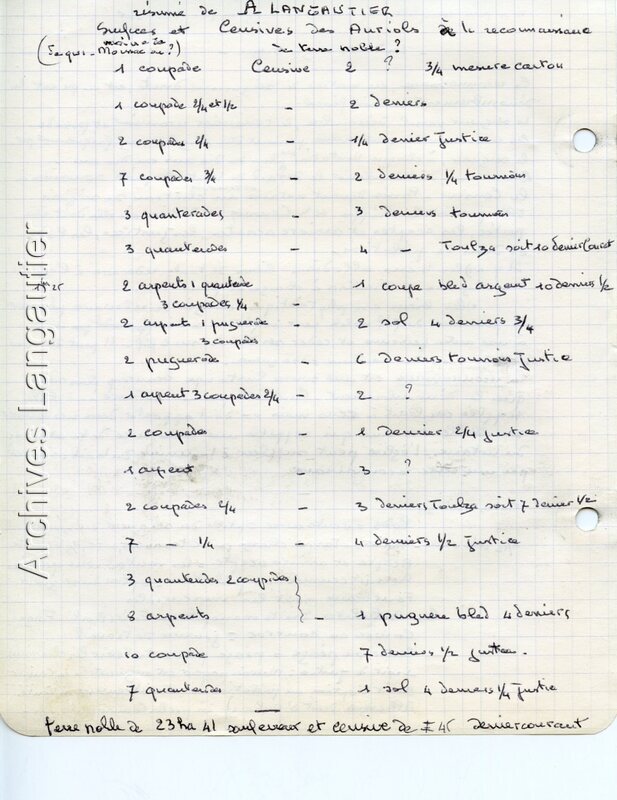 résumé de A LANGAUTIER
Surfaces et Censives des Auriols à la reconnaissance
de terre noble ?
1 coupade Censive 2 ? 3/4 mesure carton
1 coupade 2/4 et 1/2 - 2 deniers
2 coupades 2/4 - 1/4 denier Justice
7 coupades 3/4 - 2 deniers 1/4 tournois
3 quanterades - 3 deniers tournois
3 quanterades - 4 - Toulza soit 10 denier Couret
2 arpents 1 quanterade 1 coupe bled argent 10 deniers 1/2
3 coupades 1/4 -
2 arpents 1 pugnerade - 2 sol 4 deniers 3/4
3 coupades
2 pugnerade - 6 deniers tournois Justice
1 arpent 3 coupades 2/4 - 2 ?
2 coupades - 1 dernier 2/4 justice
1 arpent - 3 ?
2 coupades 2/4 - 3 deniers Toulza soit 7 denier 1/2
7 - 1/4 - 4 deniers 1/2 justice
3 quanterades 2 coupades
8 arpents - 1 pugnere bled 4 deniers
10 coupade 7 deniers 1/2 justice.
7 quanterades 1 sol 4 deniers 1/4 justice
terre noble de 23 ha 41 et censive de 45 denier courant
Archives Langautier